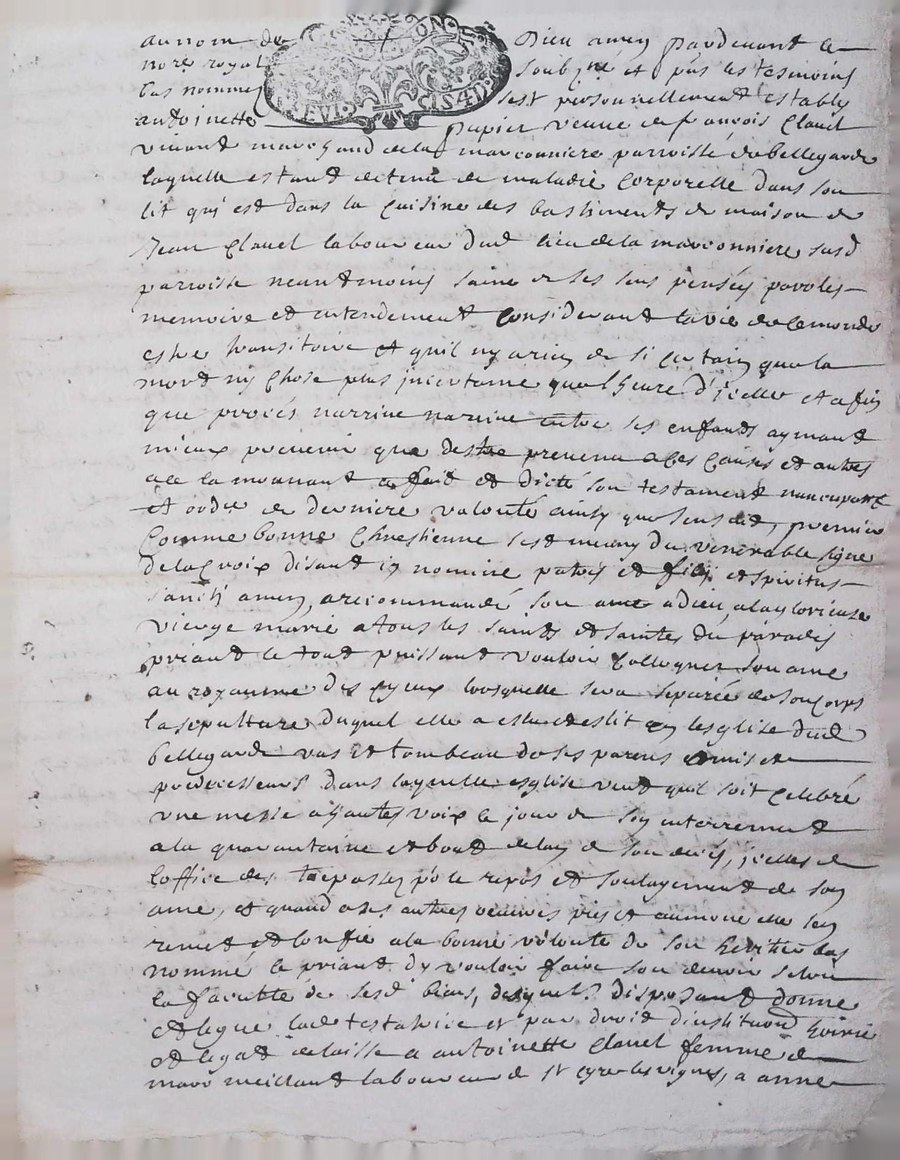 au nom de Dieu amen pardevant le
nore royal soubzné et pnts les tesmoins
bas nommes sest personnellement estably
antoinette papier veuve de françois Clauel
vivant marchand de la marconniere parroisse de bellegarde
laquelle estant detenue de maladie corporelle dans son
lit qui est dans la cuisine des bastiments de maison de
Jean Clauel laboureur dud lieu de la marconniere susd
parroisse neantmoins saine de ses sens pensées paroles
memoire et entendement Considerant la vie de ce monde
estre transitoire et quil ny a rien de si certain que la
mort ny chose plus incertaine que lheure d'icelle et afin
que procés narrive narrive entre ses enfants aymant
mieux prevenir que destre prevenu a ces causes et autres
a ce la mouvant a fait et dicté son testament nuncupatif
et ordre de derniere volonté ainsy que sensuit, premier
Comme bonne Chrestienne sest muny du venerable signe
de la croix disant in nomine patris et filii et spiritus
sancti amen, a recommandé son ame a dieu, a la glorieuse
vierge marie a tous les saints et saintes du paradis
priant le tout puissant vouloir colloquer son ame
au royaume des cyeux lorsquelle sera separée de son corps
la sepulture duquel elle a esleu et eslit en lesglise dud
bellegarde vas et tombeau de ses parens amis et
predecesseurs dans laquelle esglise veut quil soit celebré
une messe a hautes voix le jour de son enterrement
a la quarantaine et bout de lan de son decés, icelles de
loffice des trepassez pr le repos et soulagement de son
ame, et quand a ses autres œuvres pies et aumone elle sen
remet et confie a la bonne volonté de son heritier bas
nommé le priant dy vouloir faire son devoir selon
la faculté de sesd biens, desquels disposant donne
et legue lad testatrice et par droit dinstituon hoirie
et legat delaisse a antoinette Clauel femme de
marc meillant laboureur de st cyre les vignes, a anne